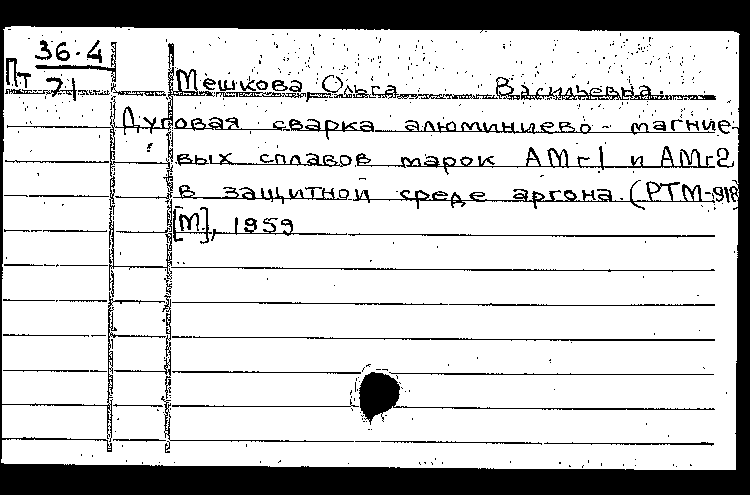 Пт 36.4
71
Мешкова, Ольга Васильевна.
Дуговая сварка алюминиево-магние-
вых сплавов марок АМг1 и АМг2
в защитной среде аргона. (РТМ-918)
[М], 1959